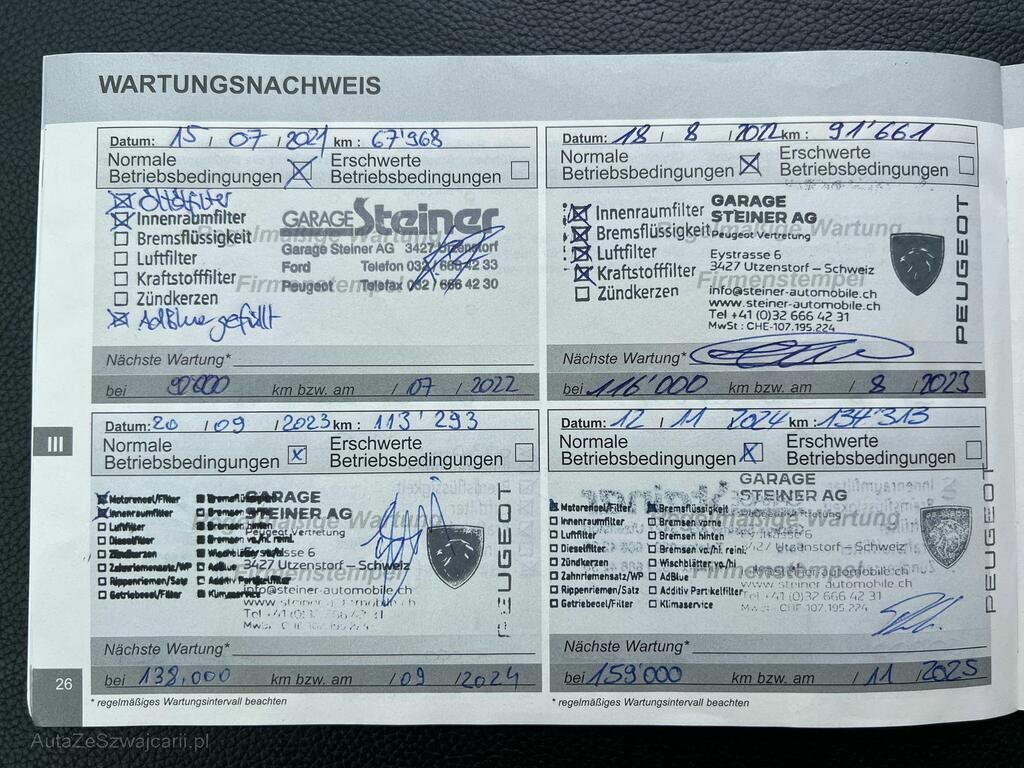 WARTUNGSNACHWEIS
Datum: 15 / 07 / 2021 km : 67'968
Normale Betriebsbedingungen
Erschwerte Betriebsbedingungen
Ölfilter
Innenraumfilter
Bremsflüssigkeit
Luftfilter
Kraftstofffilter
Zündkerzen
AdBlue gefüllt
Regelmäßige Wartung
Firmenstempel
GARAGE Steiner
Garage Steiner AG 3427 Utzenstorf
Ford Telefon 032 / 666 42 33
Peugeot Telefax 032 / 666 42 30
Nächste Wartung*
bei 90'000 km bzw. am / 07 / 2022
Datum: 18 / 8 / 2022 km : 91'661
Normale Betriebsbedingungen
Erschwerte Betriebsbedingungen
Innenraumfilter
Bremsflüssigkeit
Luftfilter
Kraftstofffilter
Zündkerzen
Regelmäßige Wartung
Firmenstempel
GARAGE
STEINER AG
Peugeot Vertretung
Eystrasse 6
3427 Utzenstorf – Schweiz
info@steiner-automobile.ch
www.steiner-automobile.ch
Tel +41 (0)32 666 42 31
MwSt : CHE-107.195.224
PEUGEOT
Nächste Wartung*
bei 116'000 km bzw. am / 8 / 2023
III
Datum: 20 / 09 / 2023 km : 113'293
Normale Betriebsbedingungen
Erschwerte Betriebsbedingungen
Motorenoel/Filter
Innenraumfilter
Luftfilter
Dieselfilter
Zündkerzen
Zahnriemensatz/WP
Rippenriemen/Satz
Getriebeoel/Filter
Bremsflüssigkeit
Bremsen vorne
Bremsen hinten
Bremsen vo/hi. reini.
Wischblätter vo/hi
AdBlue
Additiv Partikelfilter
Klimaservice
GARAGE
STEINER AG
Peugeot Vertretung
Eystrasse 6
3427 Utzenstorf – Schweiz
info@steiner-automobile.ch
www.steiner-automobile.ch
PEUGEOT
Nächste Wartung*
bei 138.000 km bzw. am / 09 / 2024
* regelmäßiges Wartungsintervall beachten
Datum: 12 / 11 / 2024 km : 134'313
Normale Betriebsbedingungen
Erschwerte Betriebsbedingungen
Motorenoel/Filter
Innenraumfilter
Luftfilter
Dieselfilter
Zündkerzen
Zahnriemensatz/WP
Rippenriemen/Satz
Getriebeoel/Filter
Bremsflüssigkeit
Bremsen vorne
Bremsen hinten
Bremsen vo/hi. reini.
Wischblätter vo/hi
AdBlue
Additiv Partikelfilter
Klimaservice
GARAGE
STEINER AG
Utzenstorf – Schweiz
www.steiner-automobile.ch
Tel +41 (0)32 666 42 31
MwSt : CHE-107.195.224
PEUGEOT
Nächste Wartung*
bei 159000 km bzw. am / 11 / 2025
* regelmäßiges Wartungsintervall beachten
26
AutaZeSzwajcarii.pl